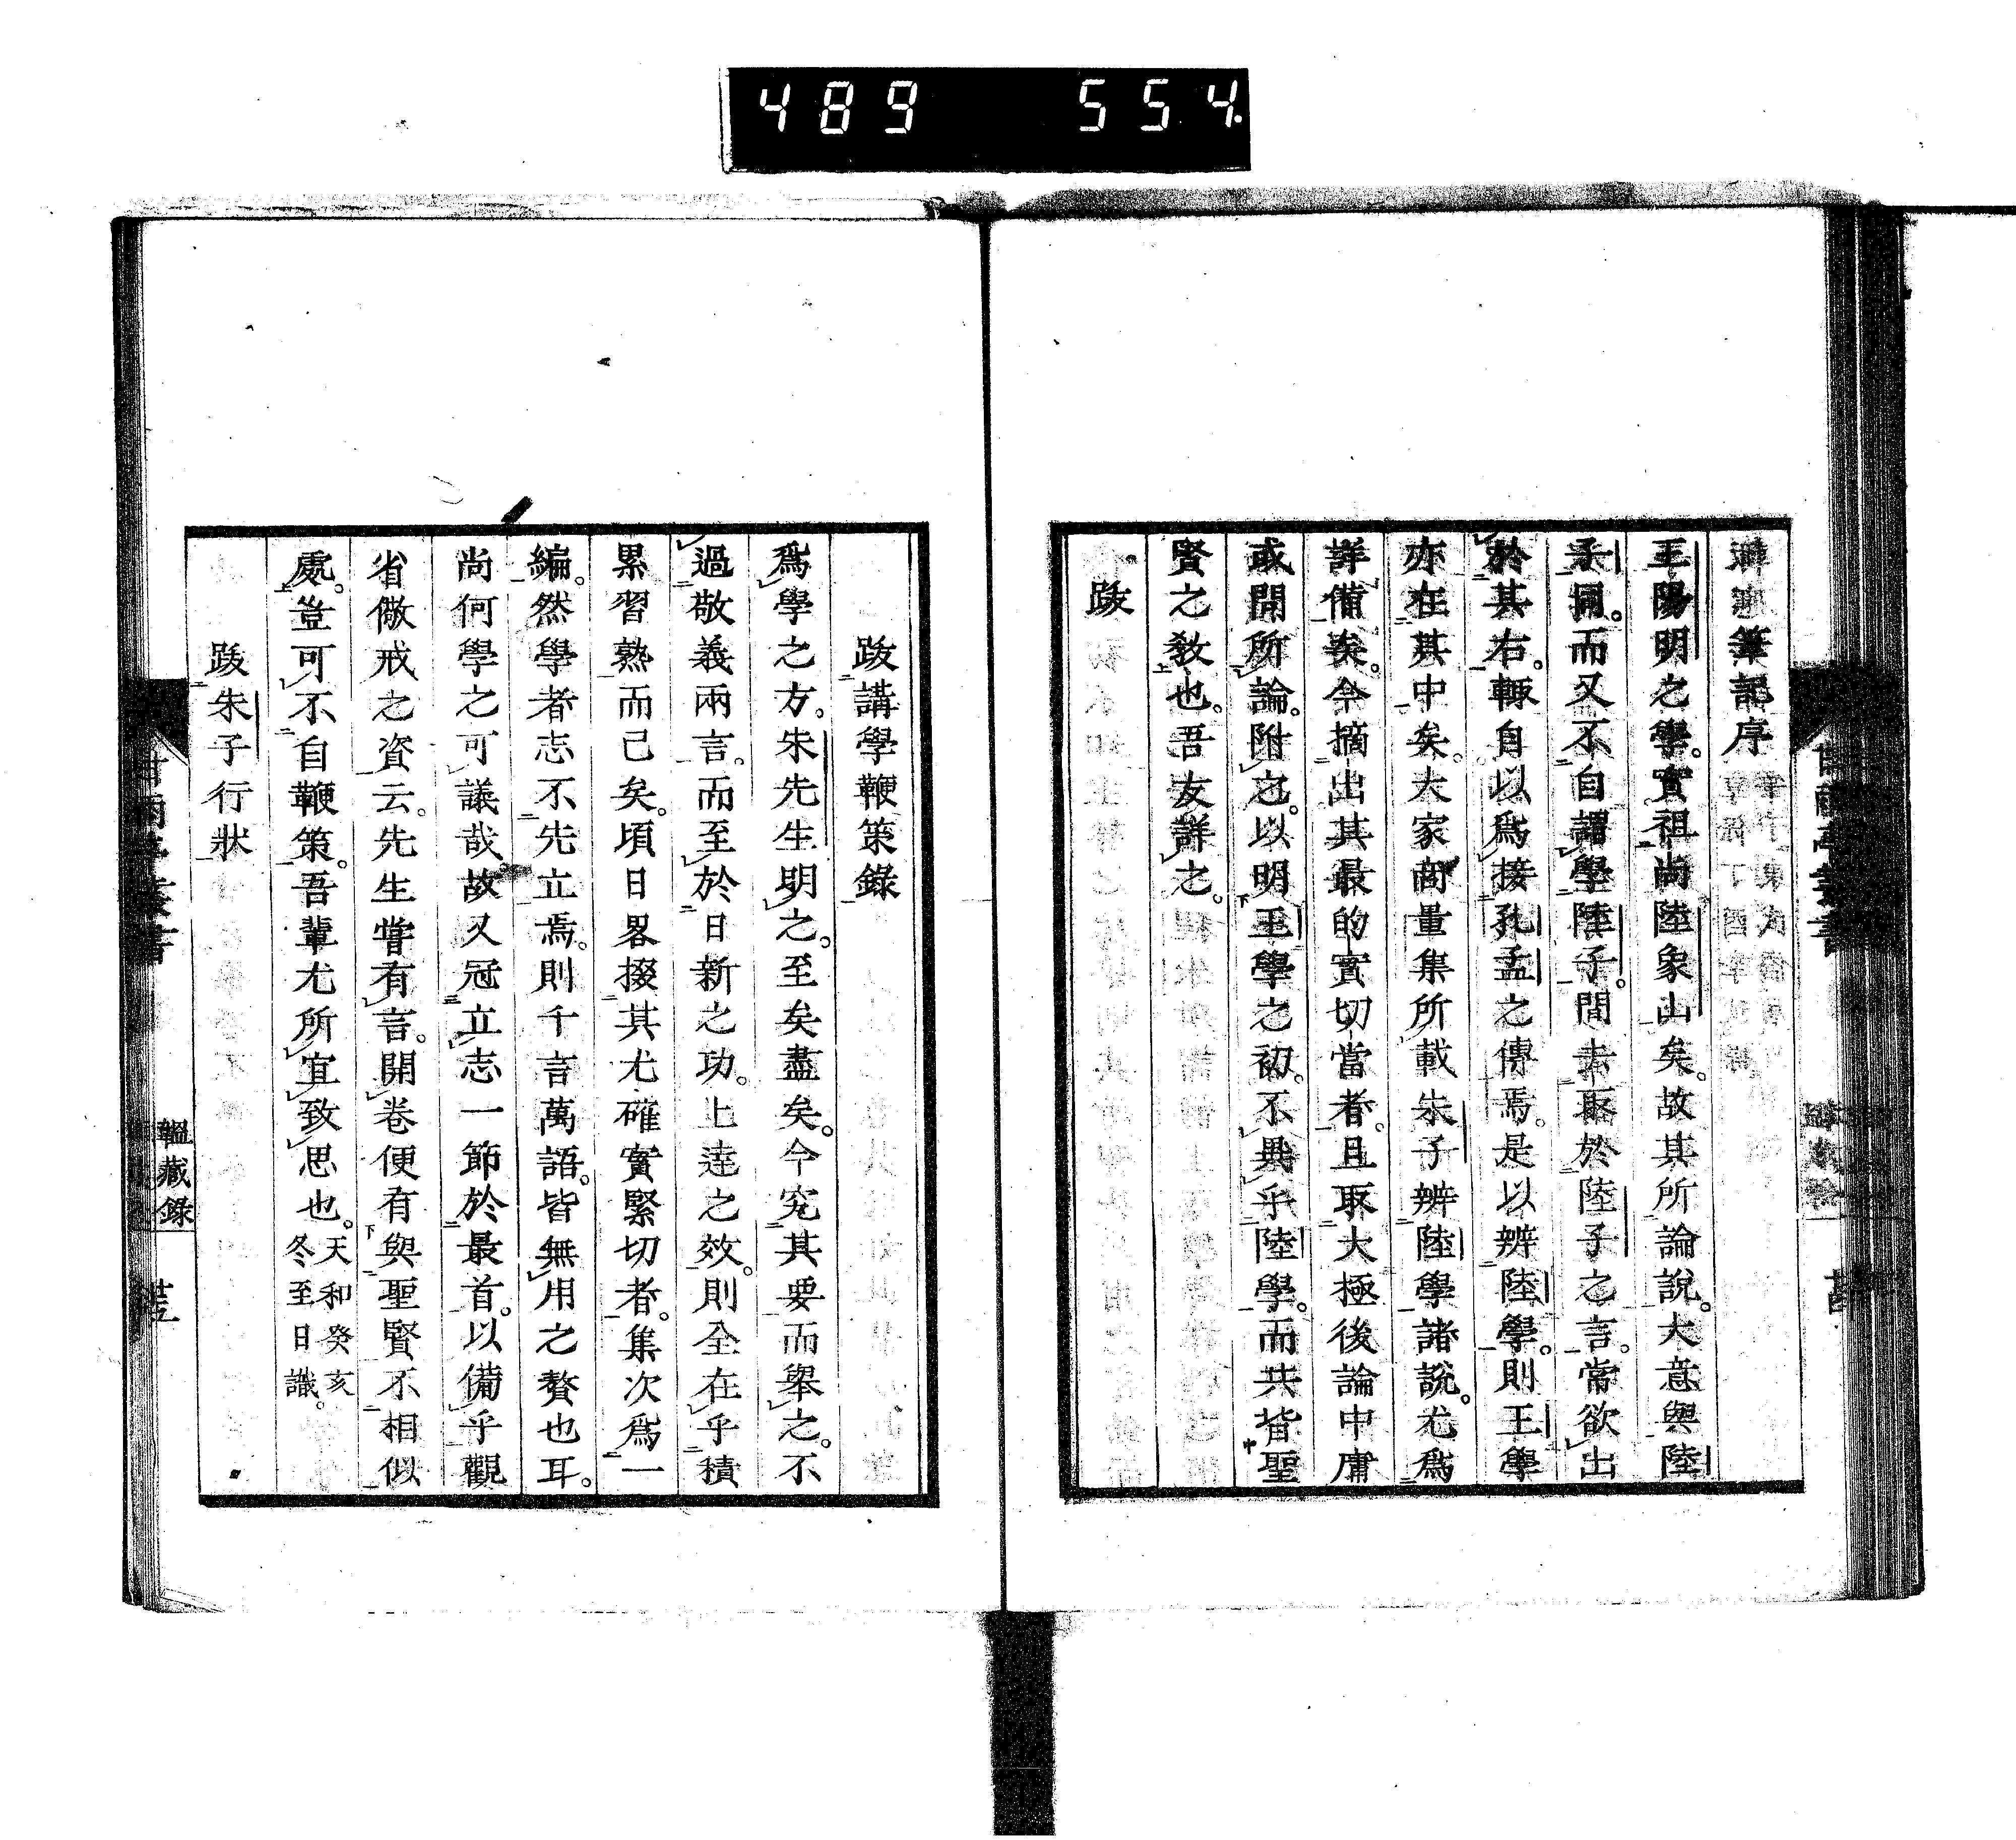 489 554.
筆記序
王陽明之學。實祖尚陸象山矣。故其所論說。大意與陸
子同。而又不自謂學陸子。間去取於陸子之言。常欲出
於其右。輙自以爲接孔孟之傳焉。是以辨陸學。則王學
亦在其中矣。大家商量集所載朱子辨陸學諸說。尤爲
詳備矣。今摘出其最的實切當者。且取大極後論中庸
或問所論。附之。以明王學之初。不異乎陸學。而共背聖
賢之敎也。吾友詳之。
跋
跋講學鞭策錄
爲學之方。朱先生明之。至矣盡矣。今究其要而舉之。不
過敬義兩言。而至於日新之功。上達之效。則全在乎積
累習熟而已矣。頃日畧掇其尤確實緊切者。集次爲一
編。然學者志不先立焉。則千言萬語。皆無用之贅也耳。
尚何學之可議哉。故又冠立志一節於最首。以備乎觀
省儆戒之資云。先生嘗有言。開卷便有與聖賢不相似
處。豈可不自鞭策。吾輩尤所宜致思也。天和癸亥
冬至日識。
跋朱子行狀
韞藏錄